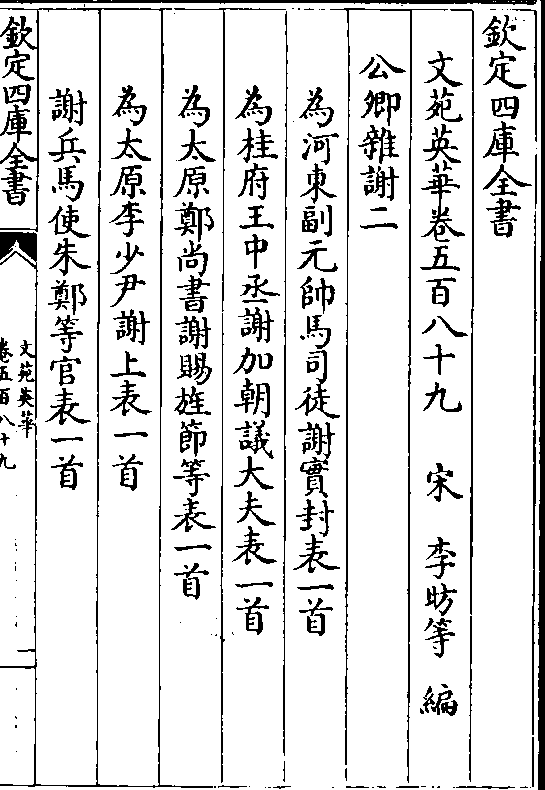 欽定四庫全書
文苑英華卷五百八十九 宋 李昉等 編
公卿雜謝二
為河東副元帥馬司徒謝實封表一首
為桂府王中丞謝加朝議大夫表一首
為太原鄭尚書謝賜旌節等表一首
為太原李少尹謝上表一首
謝兵馬使朱鄭等官表一首
欽定四庫全書
文苑英華
卷五百八十九
一